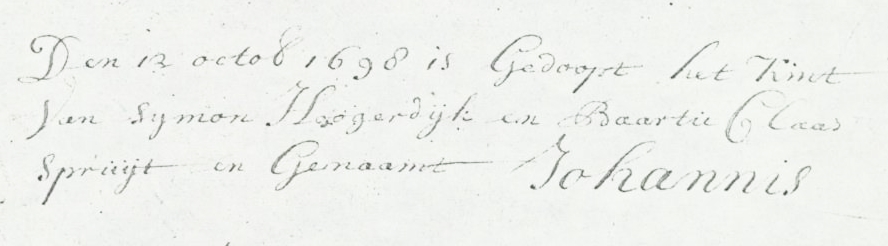 Den 12 octob 1698 is Gedoopt het Kint
Van Symon Hoogerdijk en Baartie Claas
Spruijt en Genaamt Johannis